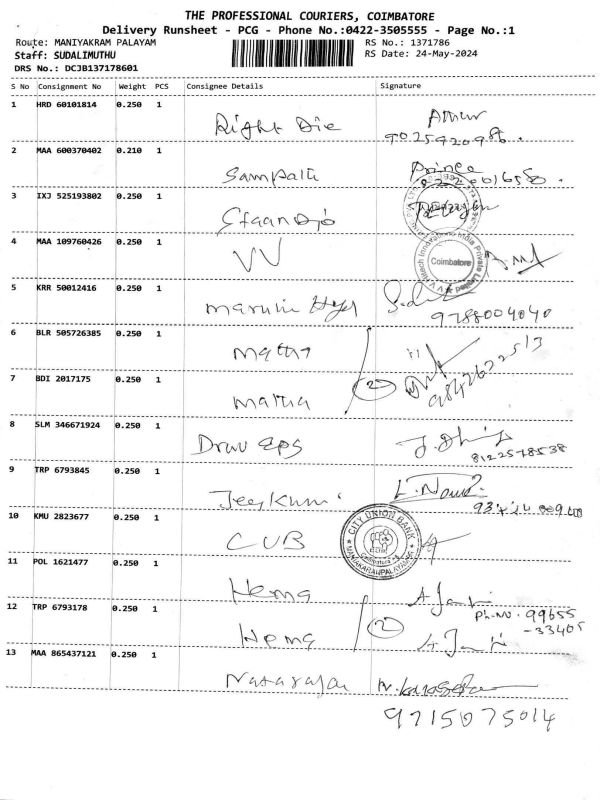 THE PROFESSIONAL COURIERS, COIMBATORE
Delivery Runsheet - PCG - Phone No.:0422-3505555 - Page No.:1
Route: MANIYAKRAM PALAYAM
RS No.: 1371786
Staff: SUDALIMUTHU
RS Date: 24-May-2024
DRS No.: DCJB137178601
S No Consignment No Weight PCS Consignee Details Signature
1 HRD 60101814 0.250 1
Right Die
9025920986.
2 MAA 600370402 0.210 1
Sampath Prince
3 IXJ 525193802 0.250 1
4 MAA 109760426 0.250 1
VV
Coimbatore
5 KRR 50012416 0.250 1
9788004040
6 BLR 505726385 0.250 1
Matha
7 BDI 2017175 0.250 1
Matha 2 9842622513
8 SLM 346671924 0.250 1
8122578538
9 TRP 6793845 0.250 1
10 KMU 2823677 0.250 1
CUB
CITY UNION BANK
11 POL 1621477 0.250 1
Hema
Ph-No. 99655
-33405
12 TRP 6793178 0.250 1
Hema 2
13 MAA 865437121 0.250 1
Natarajan
9715075014